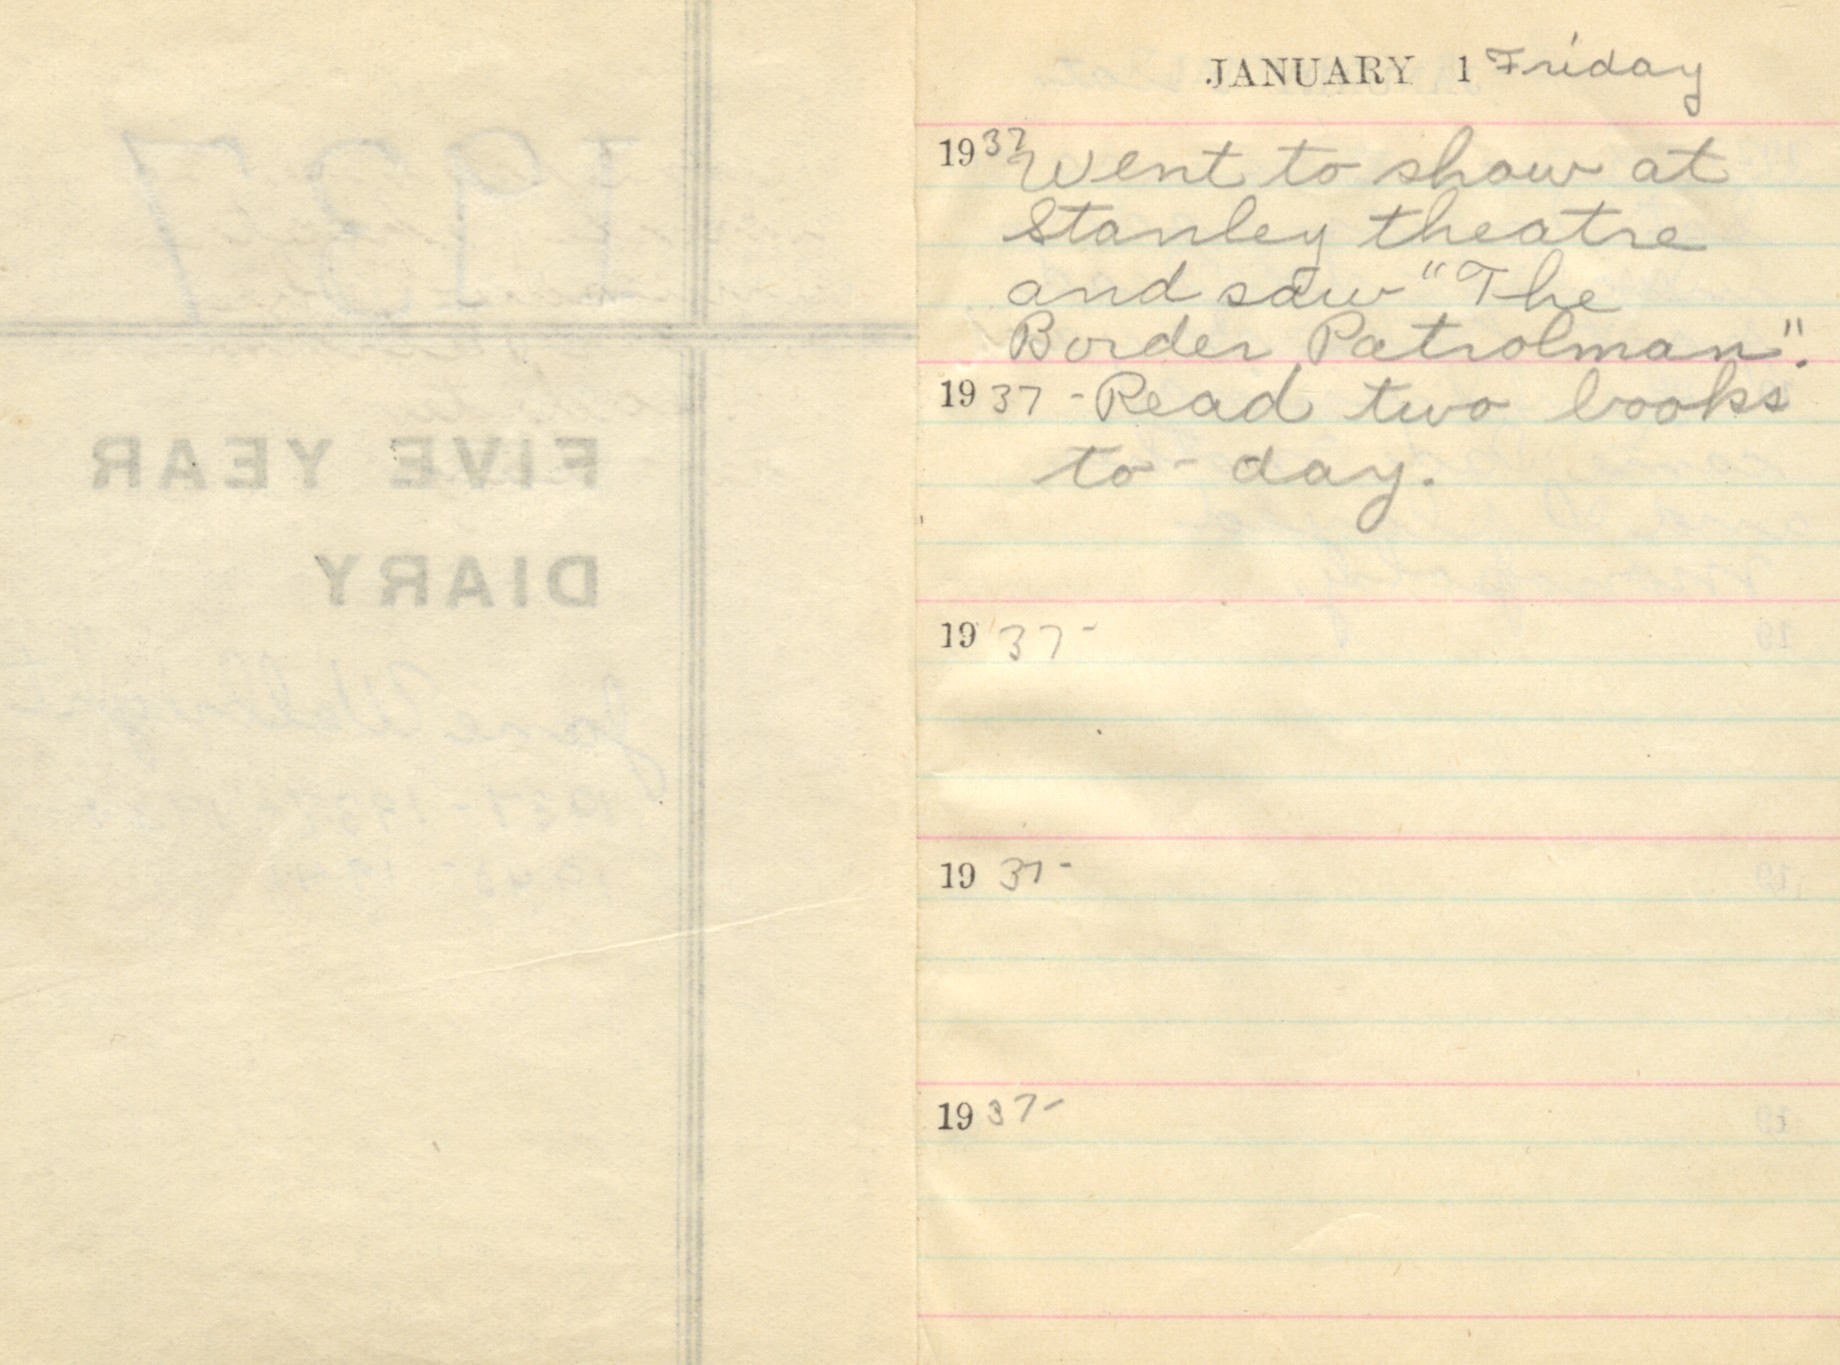 1937
FIVE YEAR
DIARY
JANUARY 1 Friday
1937 Went to show at
Stanley theatre
and saw "The
Border Patrolman".
1937 - Read two books
to-day.
1937-
1937-
1937-